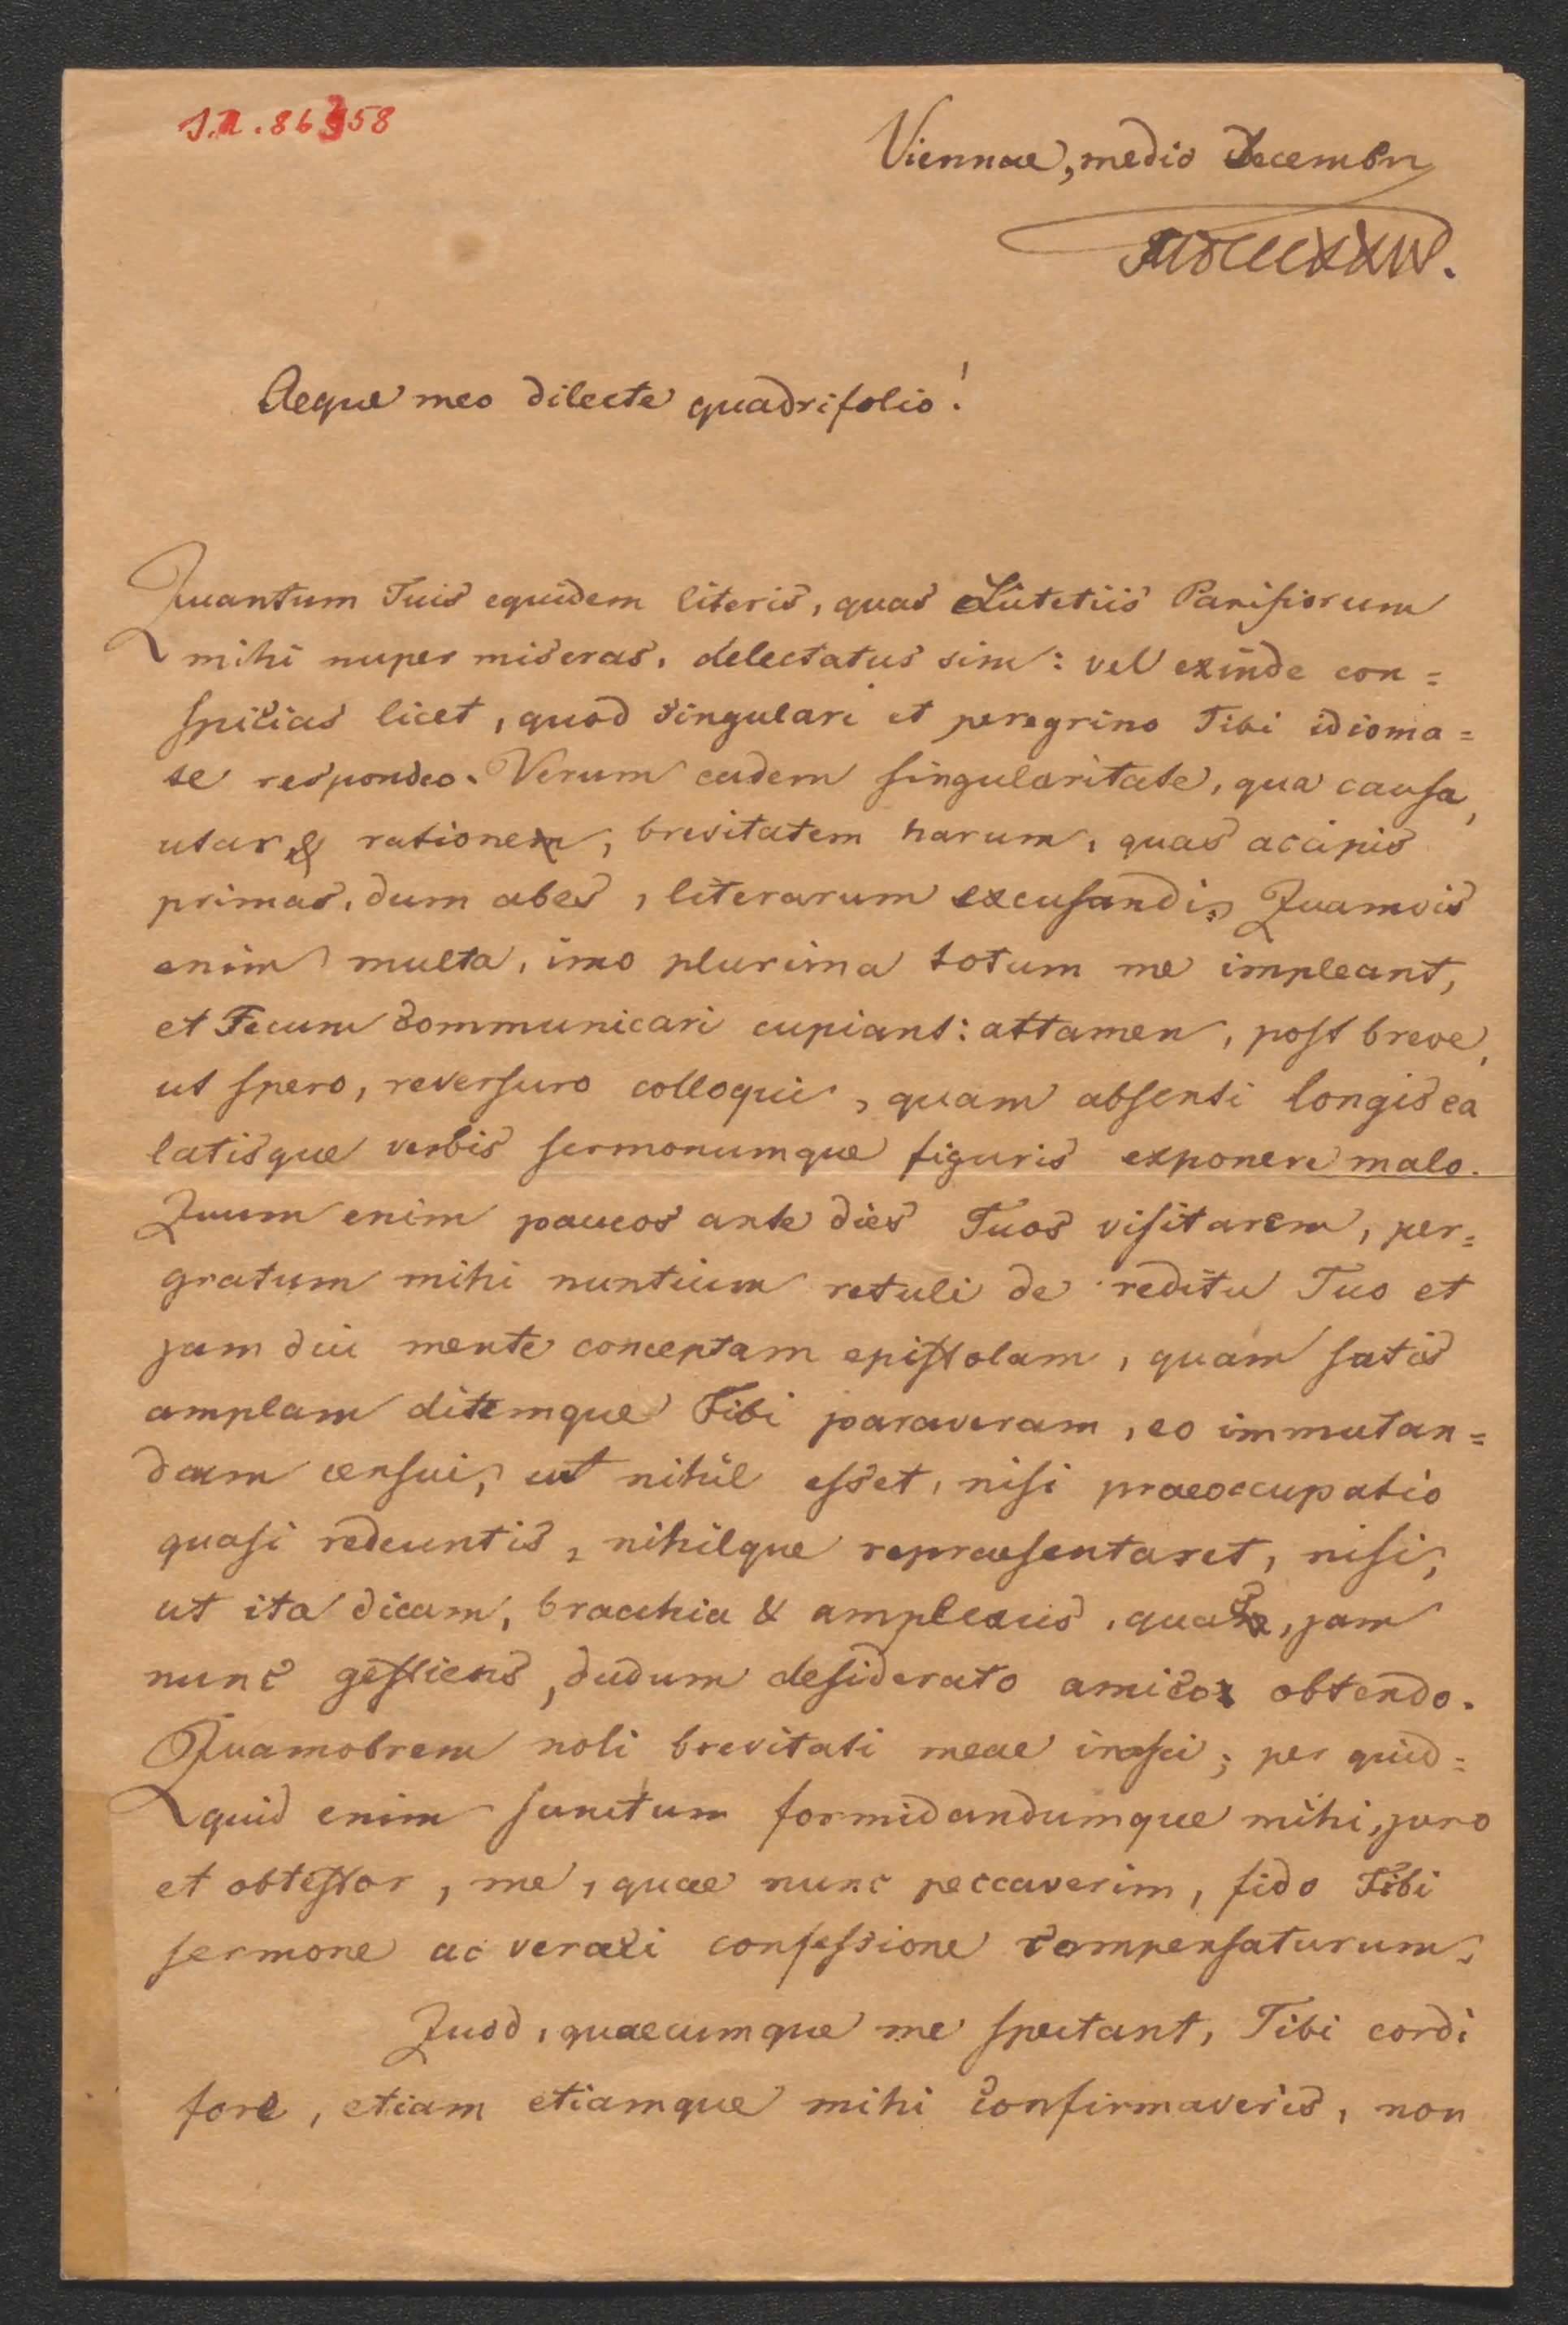 J.N. 86358
Viennae, medio Decembri
MDCCCXXIV.
Aeque meo dilecte quadrifolio!
Quantum Tuis equidem literis, quas Lutetiis Parisiorum
mihi nuper miseras, delectatus sim: vel exinde con=
spicias licet, quod singulari et peregrino Tibi idioma=
te respondeo. Verum eadem singularitate, qua causa,
utar & ratione, brevitatem harum, quas accipis
primas, dum abes, literarum excusandi. Quamvis
enim multa, imo plurima totum me impleant,
et Tecum communicari cupiant: attamen, post breve,
ut spero, reversuro colloqui, quam absenti longis ea
latisque verbis sermonumque figuris exponere malo.
Quum enim paucos ante dies Tuos visitarem, per=
gratum mihi nuntium retuli de reditu Tuo et
jam diu mente conceptam epistolam, quam satis
amplam ditemque Tibi paraveram, eo immutan=
dam censui, ut nihil esset, nisi praeoccupatio
quasi redeuntis, nihilque repraesentaret, nisi,
ut ita dicam, bracchia & amplexus, quos, jam
nunc gestiens, dudum desiderato amico obtendo.
Quamobrem noli brevitati meae irasci; per quid=
quid enim sanctum formidandumque mihi, juro
et obtestor, me, quae nunc peccaverim, fido Tibi
sermone ac veraci confessione compensaturum.
Quod, quaecumque me spectant, Tibi cordi
fore, etiam etiamque mihi confirmaveris, non